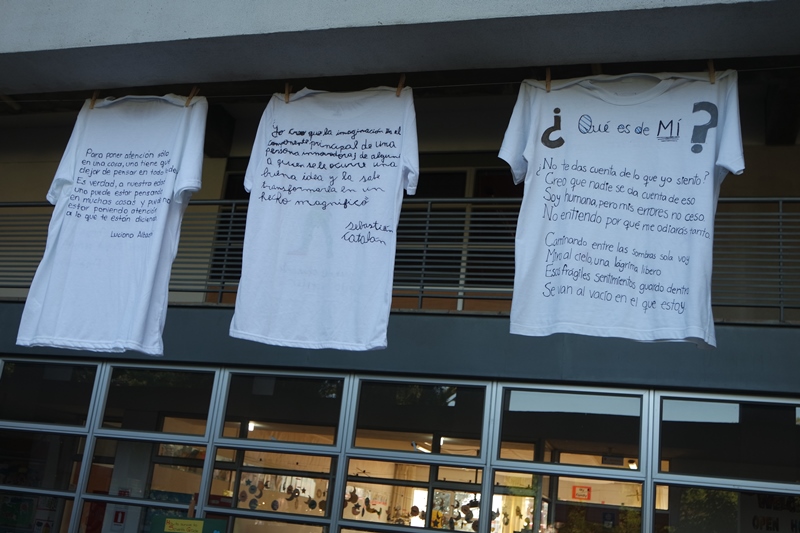 Para poner atención sólo
en una cosa, uno tiene que
dejar de pensar en todo lo de
Es verdad, a nuestra edad
uno puede estar pensando
en muchas cosas y puede no
estar poniendo atención
a lo que te están diciendo
Luciano
Yo creo que la imaginación es el
componente principal de una
persona innovadora, de alguien
a quien se le ocurre una
buena idea y la sabe
transformarla en un
hecho magnífico
Sebastián
Catalán
¿Qué es de MÍ?
¿No te das cuenta de lo que yo siento?
Creo que nadie se da cuenta de eso
Soy humana, pero mis errores no ceso
No entiendo por qué me odiarás tanto.
Caminando entre las sombras sola voy
Miro al cielo, una lágrima libero
Esos frágiles sentimientos guardo dentro
Se van al vacío en el que estoy